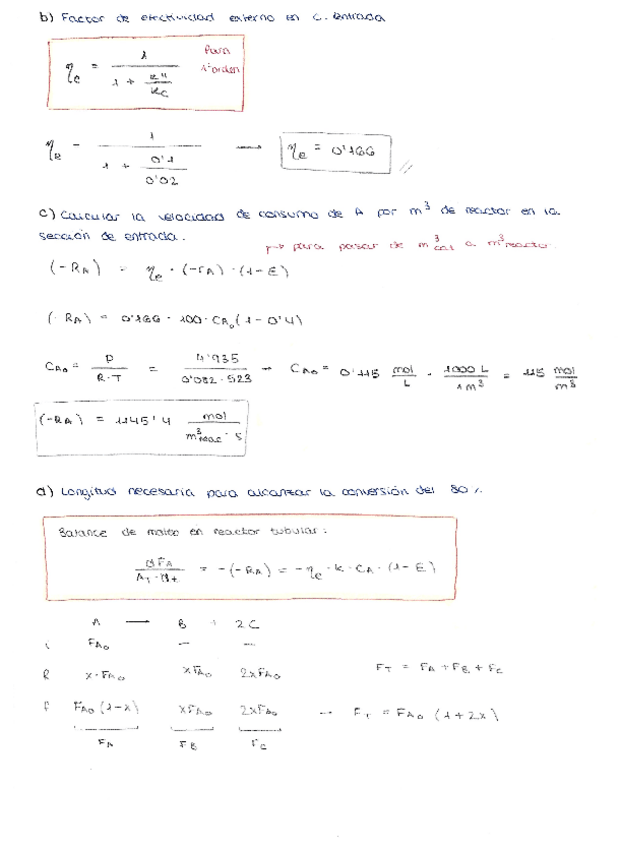 b) Factor de efectividad externo en C. Entrada
ηe = 1 / (1 + k'' / kc) Para 1er orden
ηe = 1 / (1 + 0'1 / 0'02) → ηe = 0'166 //
c) Calcular la velocidad de consumo de A por m³ de reactor en la
sección de entrada.
para pasar de m³cat a m³reactor
(-RA) = ηe · (-rA) · (1-E)
(-RA) = 0'166 · 100 · CA₀ (1-0'4)
CA₀ = P / R·T = 4'935 / 0'082 · 523 → CA₀ = 0'115 mol/L · 1000 L / 1 m³ = 115 mol/m³
(-RA) = 1145'4 mol / m³reac · s
d) Longitud necesaria para alcanzar la conversión del 80 %.
Balance de materia en reactor tubular:
dFA / At · dz = -(-RA) = -ηe · k · CA · (1-E)
A → B + 2C
i FA₀ — —
R x·FA₀ xFA₀ 2xFA₀ FT = FA + FB + FC
f FA₀(1-x) xFA₀ 2xFA₀ → FT = FA₀ (1+2x)
FA FB FC